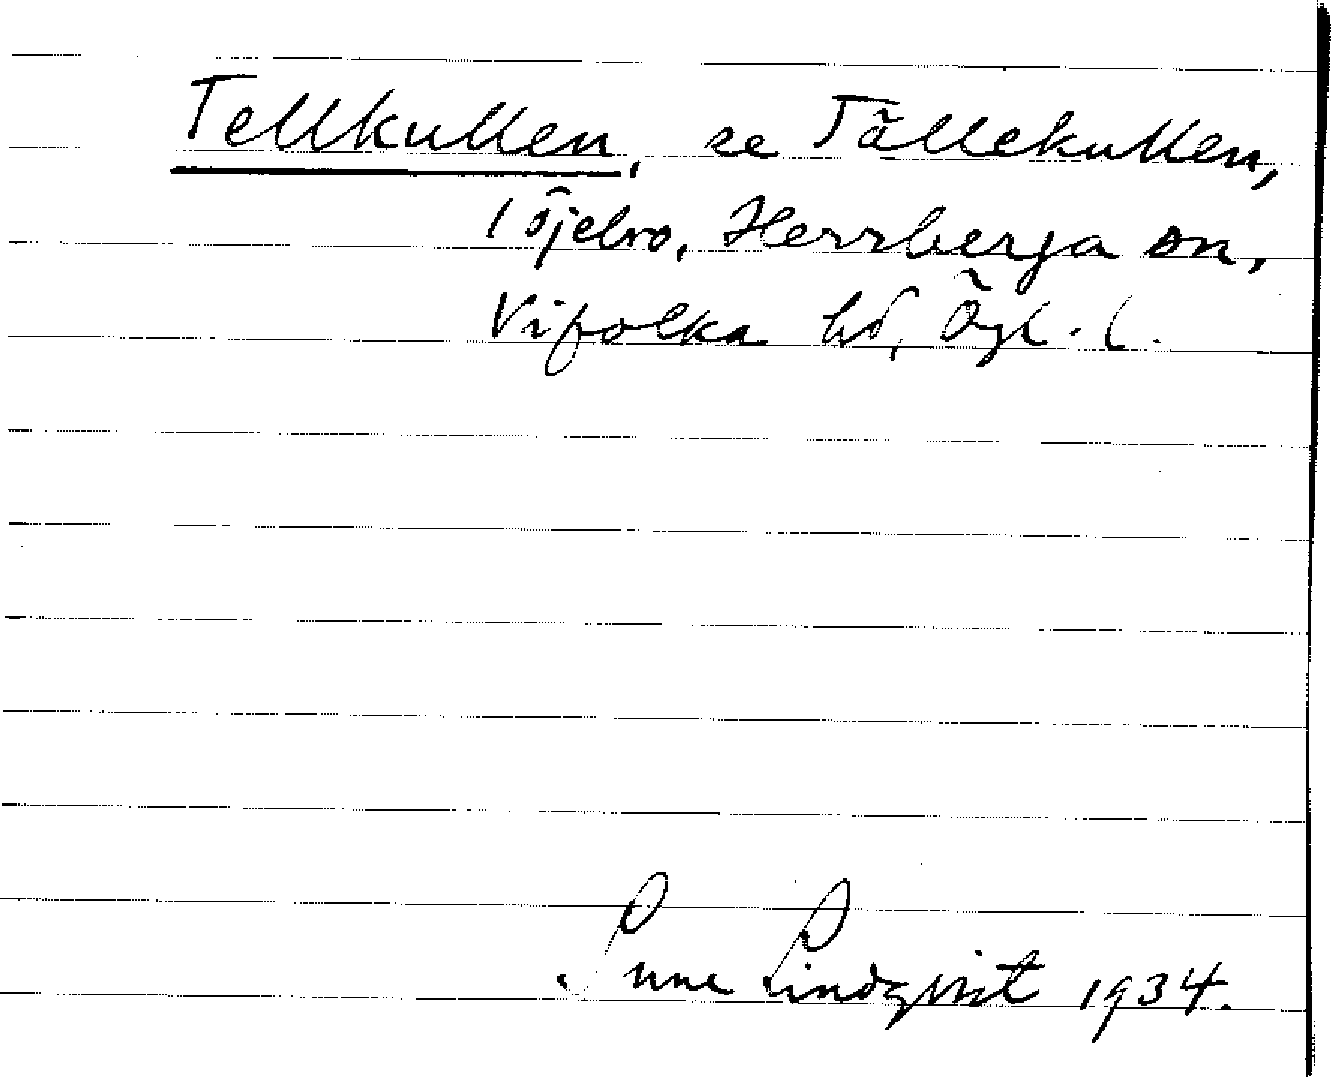 Tellkullen, se Tällekullen,
Öjebro, Herrberga sn,
Vifolka hd, Ögl. l.
Sune Lindqvist 1934.